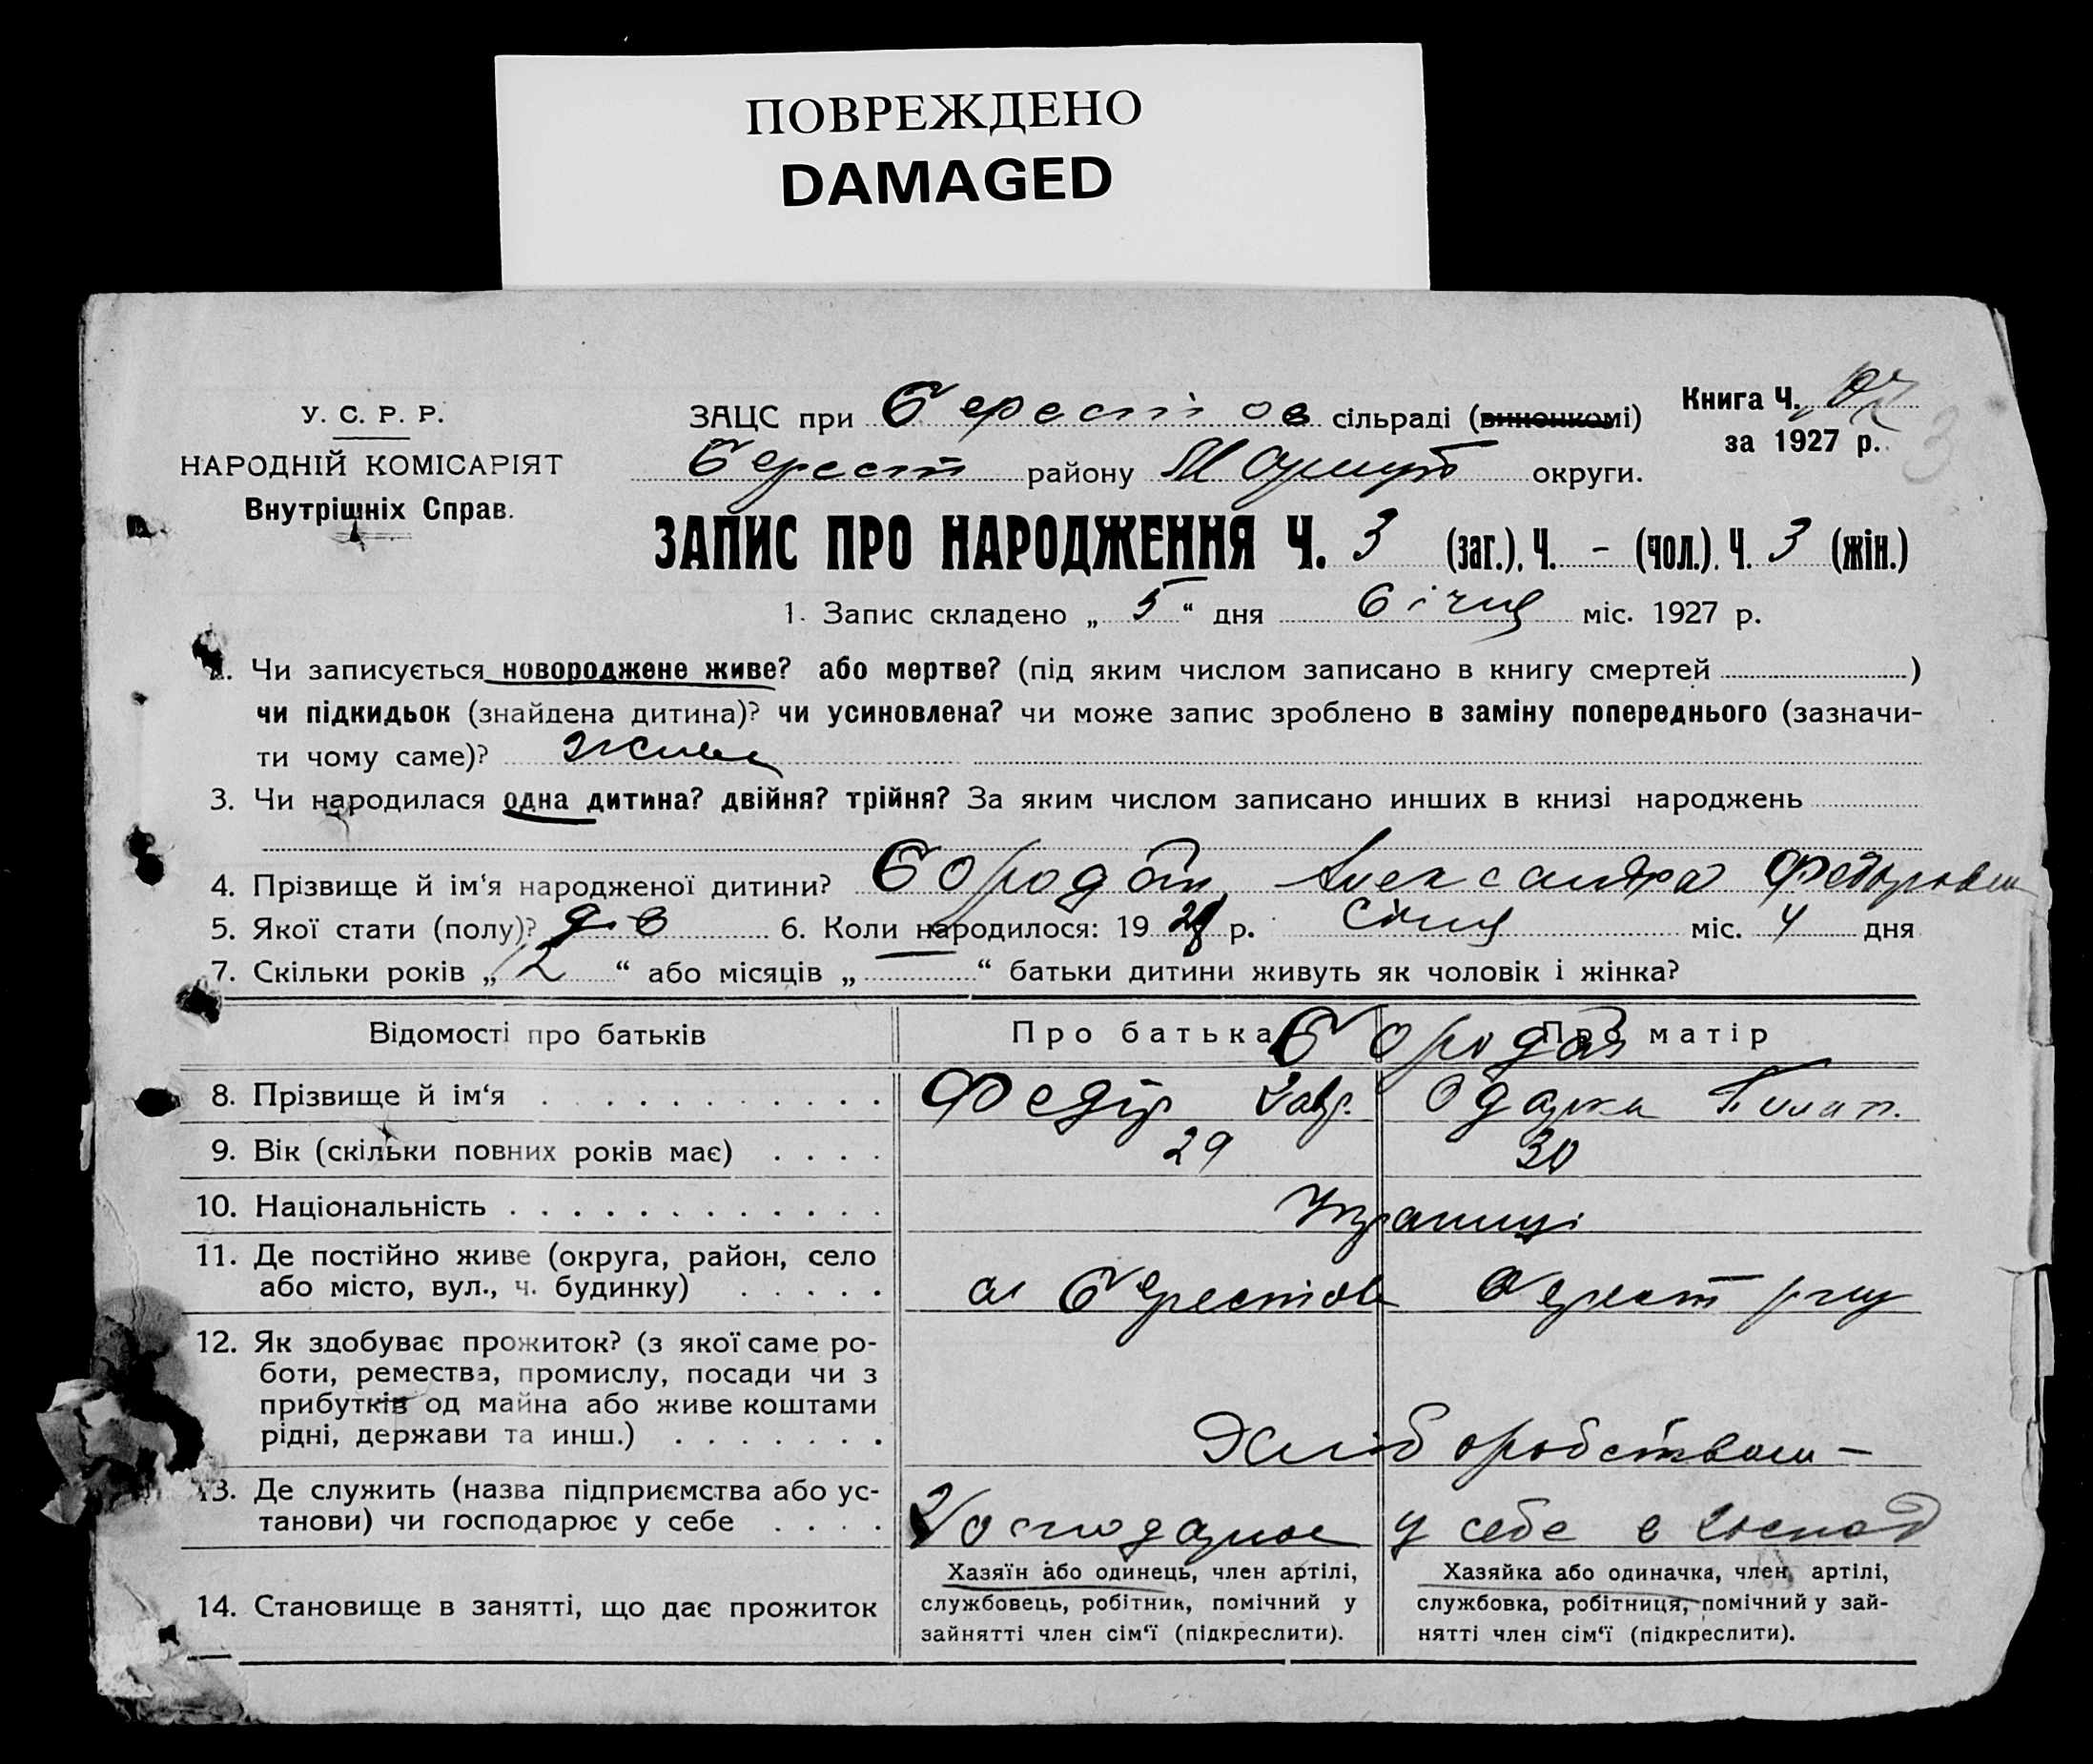 ПОВРЕЖДЕНО
DAMAGED
У. С. Р. Р.
НАРОДНІЙ КОМІСАРІЯТ
Внутрішніх Справ.
ЗАЦС при Берестов сільраді (виконкомі)
Книга Ч.
за 1927 р.
3
Берест району Маріуп округи.
ЗАПИС ПРО НАРОДЖЕННЯ Ч. 3 (заг.). Ч. - (чол.). Ч. 3 (жін.)
1. Запис складено „ 5 “ дня Січня міс. 1927 р.
Чи записується новороджене живе? або мертве? (під яким числом записано в книгу смертей )
чи підкидьок (знайдена дитина)? чи усиновлена? чи може запис зроблено в заміну попереднього (зазначи-
ти чому саме)? живе
3. Чи народилася одна дитина? двійня? трійня? За яким числом записано инших в книзі народжень
4. Прізвище й ім'я народженої дитини? Александра Федоровна
5. Якої стати (полу)? дів 6. Коли народилося: 19 27 р. січня міс. 4 дня
7. Скільки років „ 2 “ або місяців „ “ батьки дитини живуть як чоловік і жінка?
Відомості про батьків
Про батька
Про матір
8. Прізвище й ім‘я . . . . . . . . . . . . .
Федір Лавр. Одарка
9. Вік (скільки повних років має) . . . .
29 30
10. Національність . . . . . . . . . . . . . .
Українці
11. Де постійно живе (округа, район, село
або місто, вул., ч. будинку) . . . . .
Берестове Берест р-ну
12. Як здобуває прожиток? (з якої саме ро-
боти, ремества, промислу, посади чи з
прибутків од майна або живе коштами
рідні, держави та инш.) . . . . . . . .
Хліборобством –
13. Де служить (назва підприємства або ус-
танови) чи господарює у себе . . . .
Господарює у себе в господ
14. Становище в занятті, що дає прожиток
Хазяїн або одинець, член артілі,
службовець, робітник, помічний у
зайнятті член сім‘ї (підкреслити).
Хазяйка або одиначка, член артілі,
службовка, робітниця, помічний у зай-
нятті член сім‘ї (підкреслити).